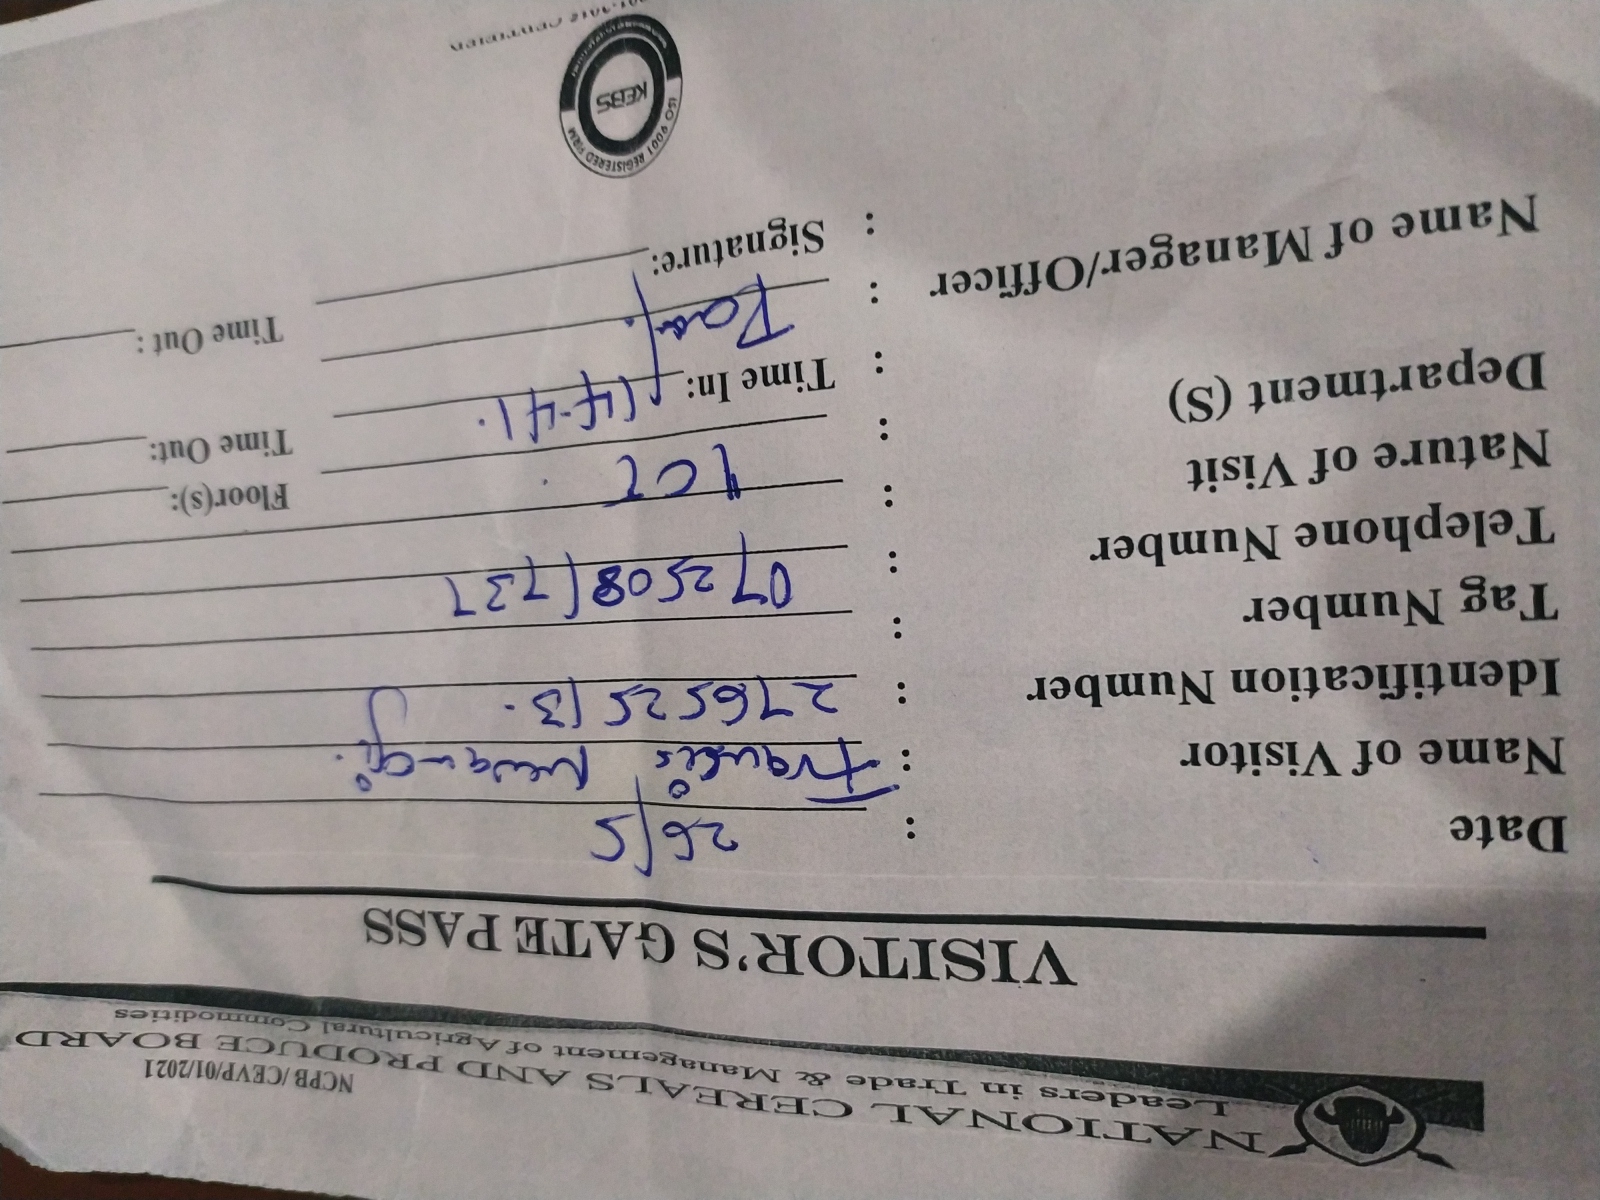 NCPB/CEVP/01/2021
NATIONAL CEREALS AND PRODUCE BOARD
Leaders in Trade & Management of Agricultural Commodities
VISITOR'S GATE PASS
Date : 26/5
Name of Visitor : Francis
Identification Number : 27652513.
Tag Number :
Telephone Number : 0725081737
Nature of Visit :
Department (S) : ICT Floor(s):
: Time In: 14-41. Time Out:
Name of Manager/Officer :
: Signature: Time Out :
ISO 9001 REGISTERED FIRM
KEBS